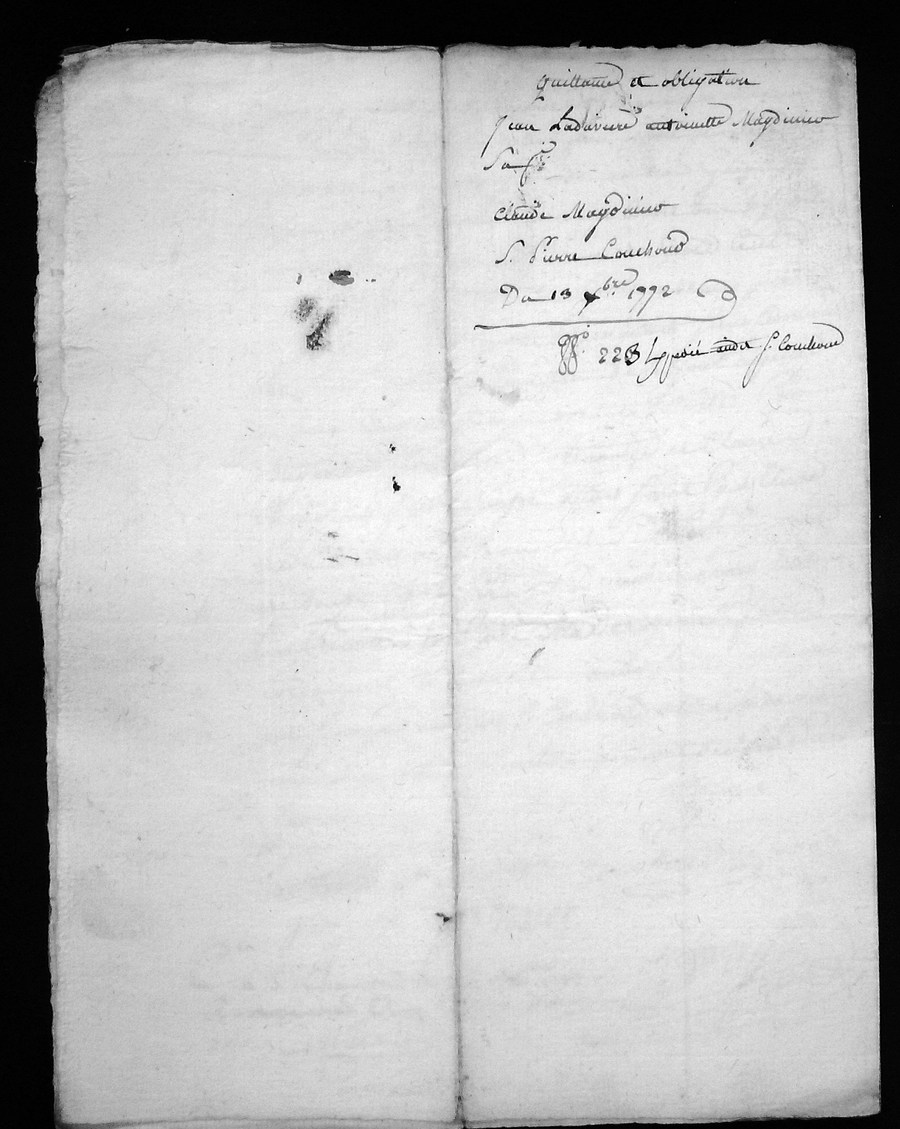 Quittance et obligation
Jean Ladaveze antoinette Maydinier
Sa fe
Claude Maydinier
S. Pierre Couchoud
Du 13 xbre 1772
228 Expedié audit S. Couchoud